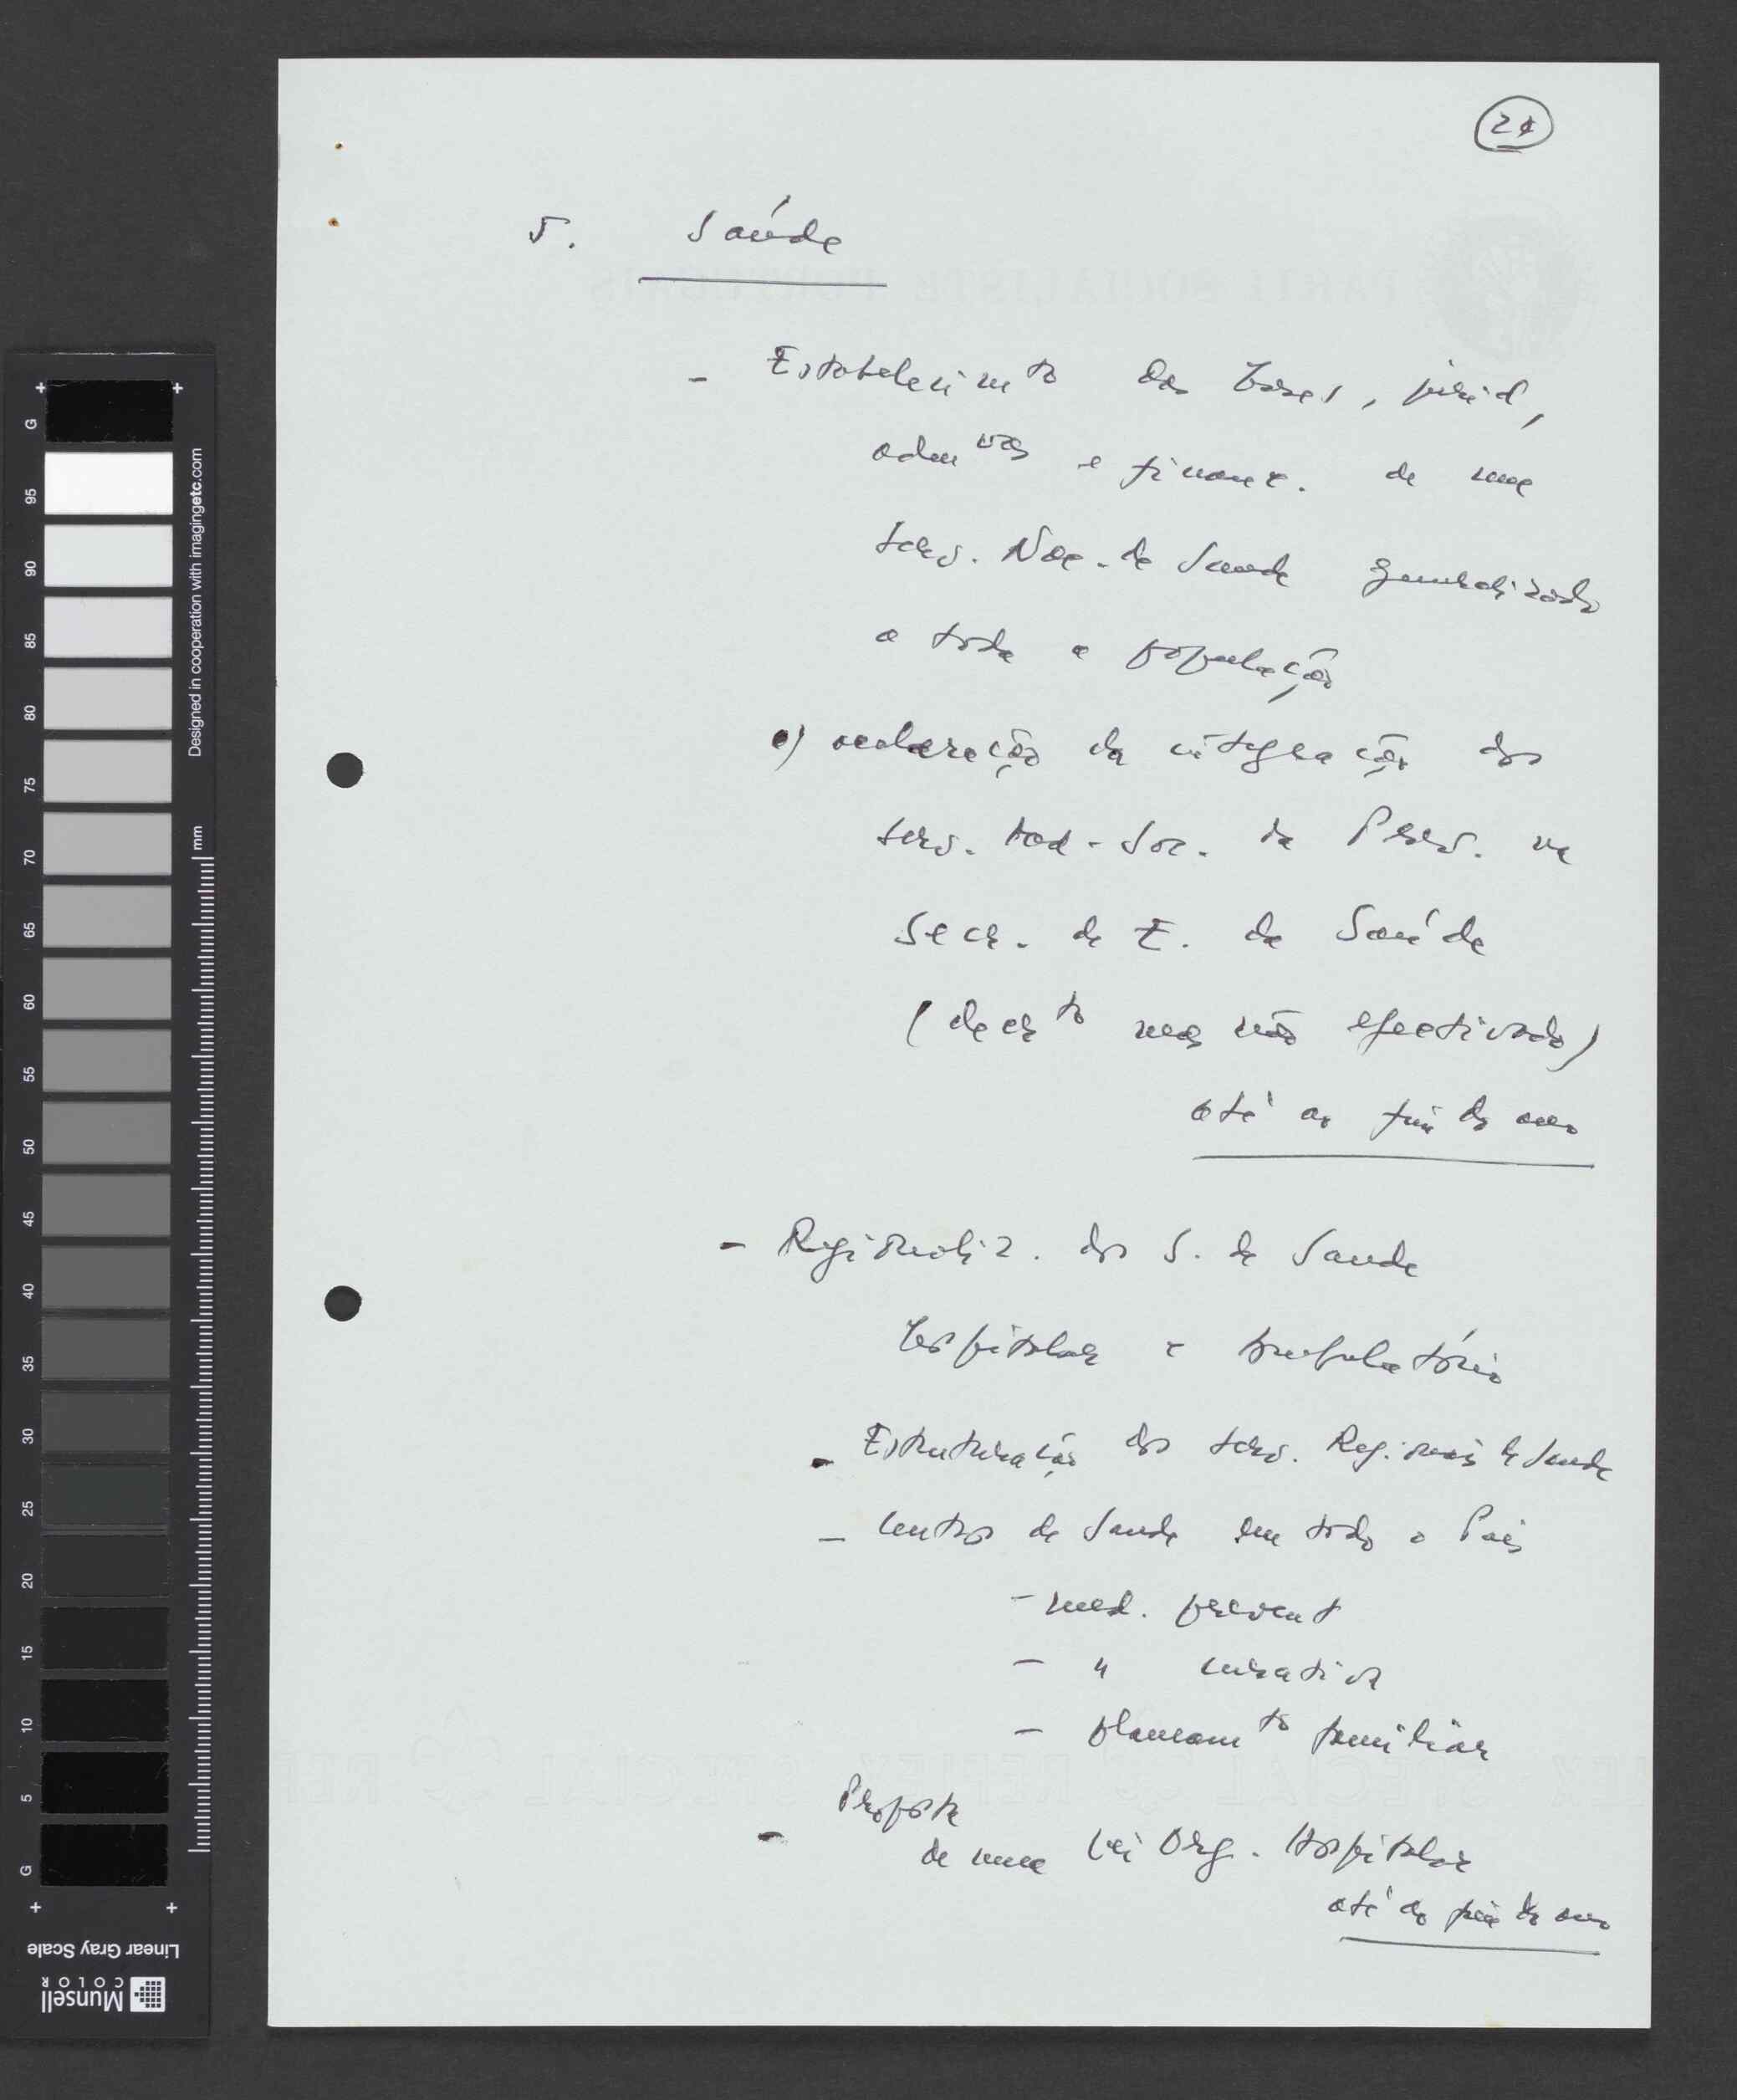 5. Saúde
- Estabelecimto das bases, juríd,
admvas e financ. de um
Serv. Nac. de Saude generalizado
a toda a população
a) aceleração da integração dos
serv. Med-Soc. da Prev. na
Secr. de E. da Saúde
(decrto mas não efectivado)
até ao fim do ano
- Regionaliz. dos S. de Saude
hospitalar e ambulatório
- Estruturação dos serv. Regionais de Saude
- Centros de Saude em todo o País
- med. prevent
- " curativa
- planeamto familiar
- Proposta
de uma Lei Org. Hospitalar
até ao fim do ano
G
95
90
85
80
75
70
65
60
55
50
45
40
35
30
25
20
15
10
5
G
mm
Designed in cooperation with imagingetc.com
Linear Gray Scale
Munsell
COLOR